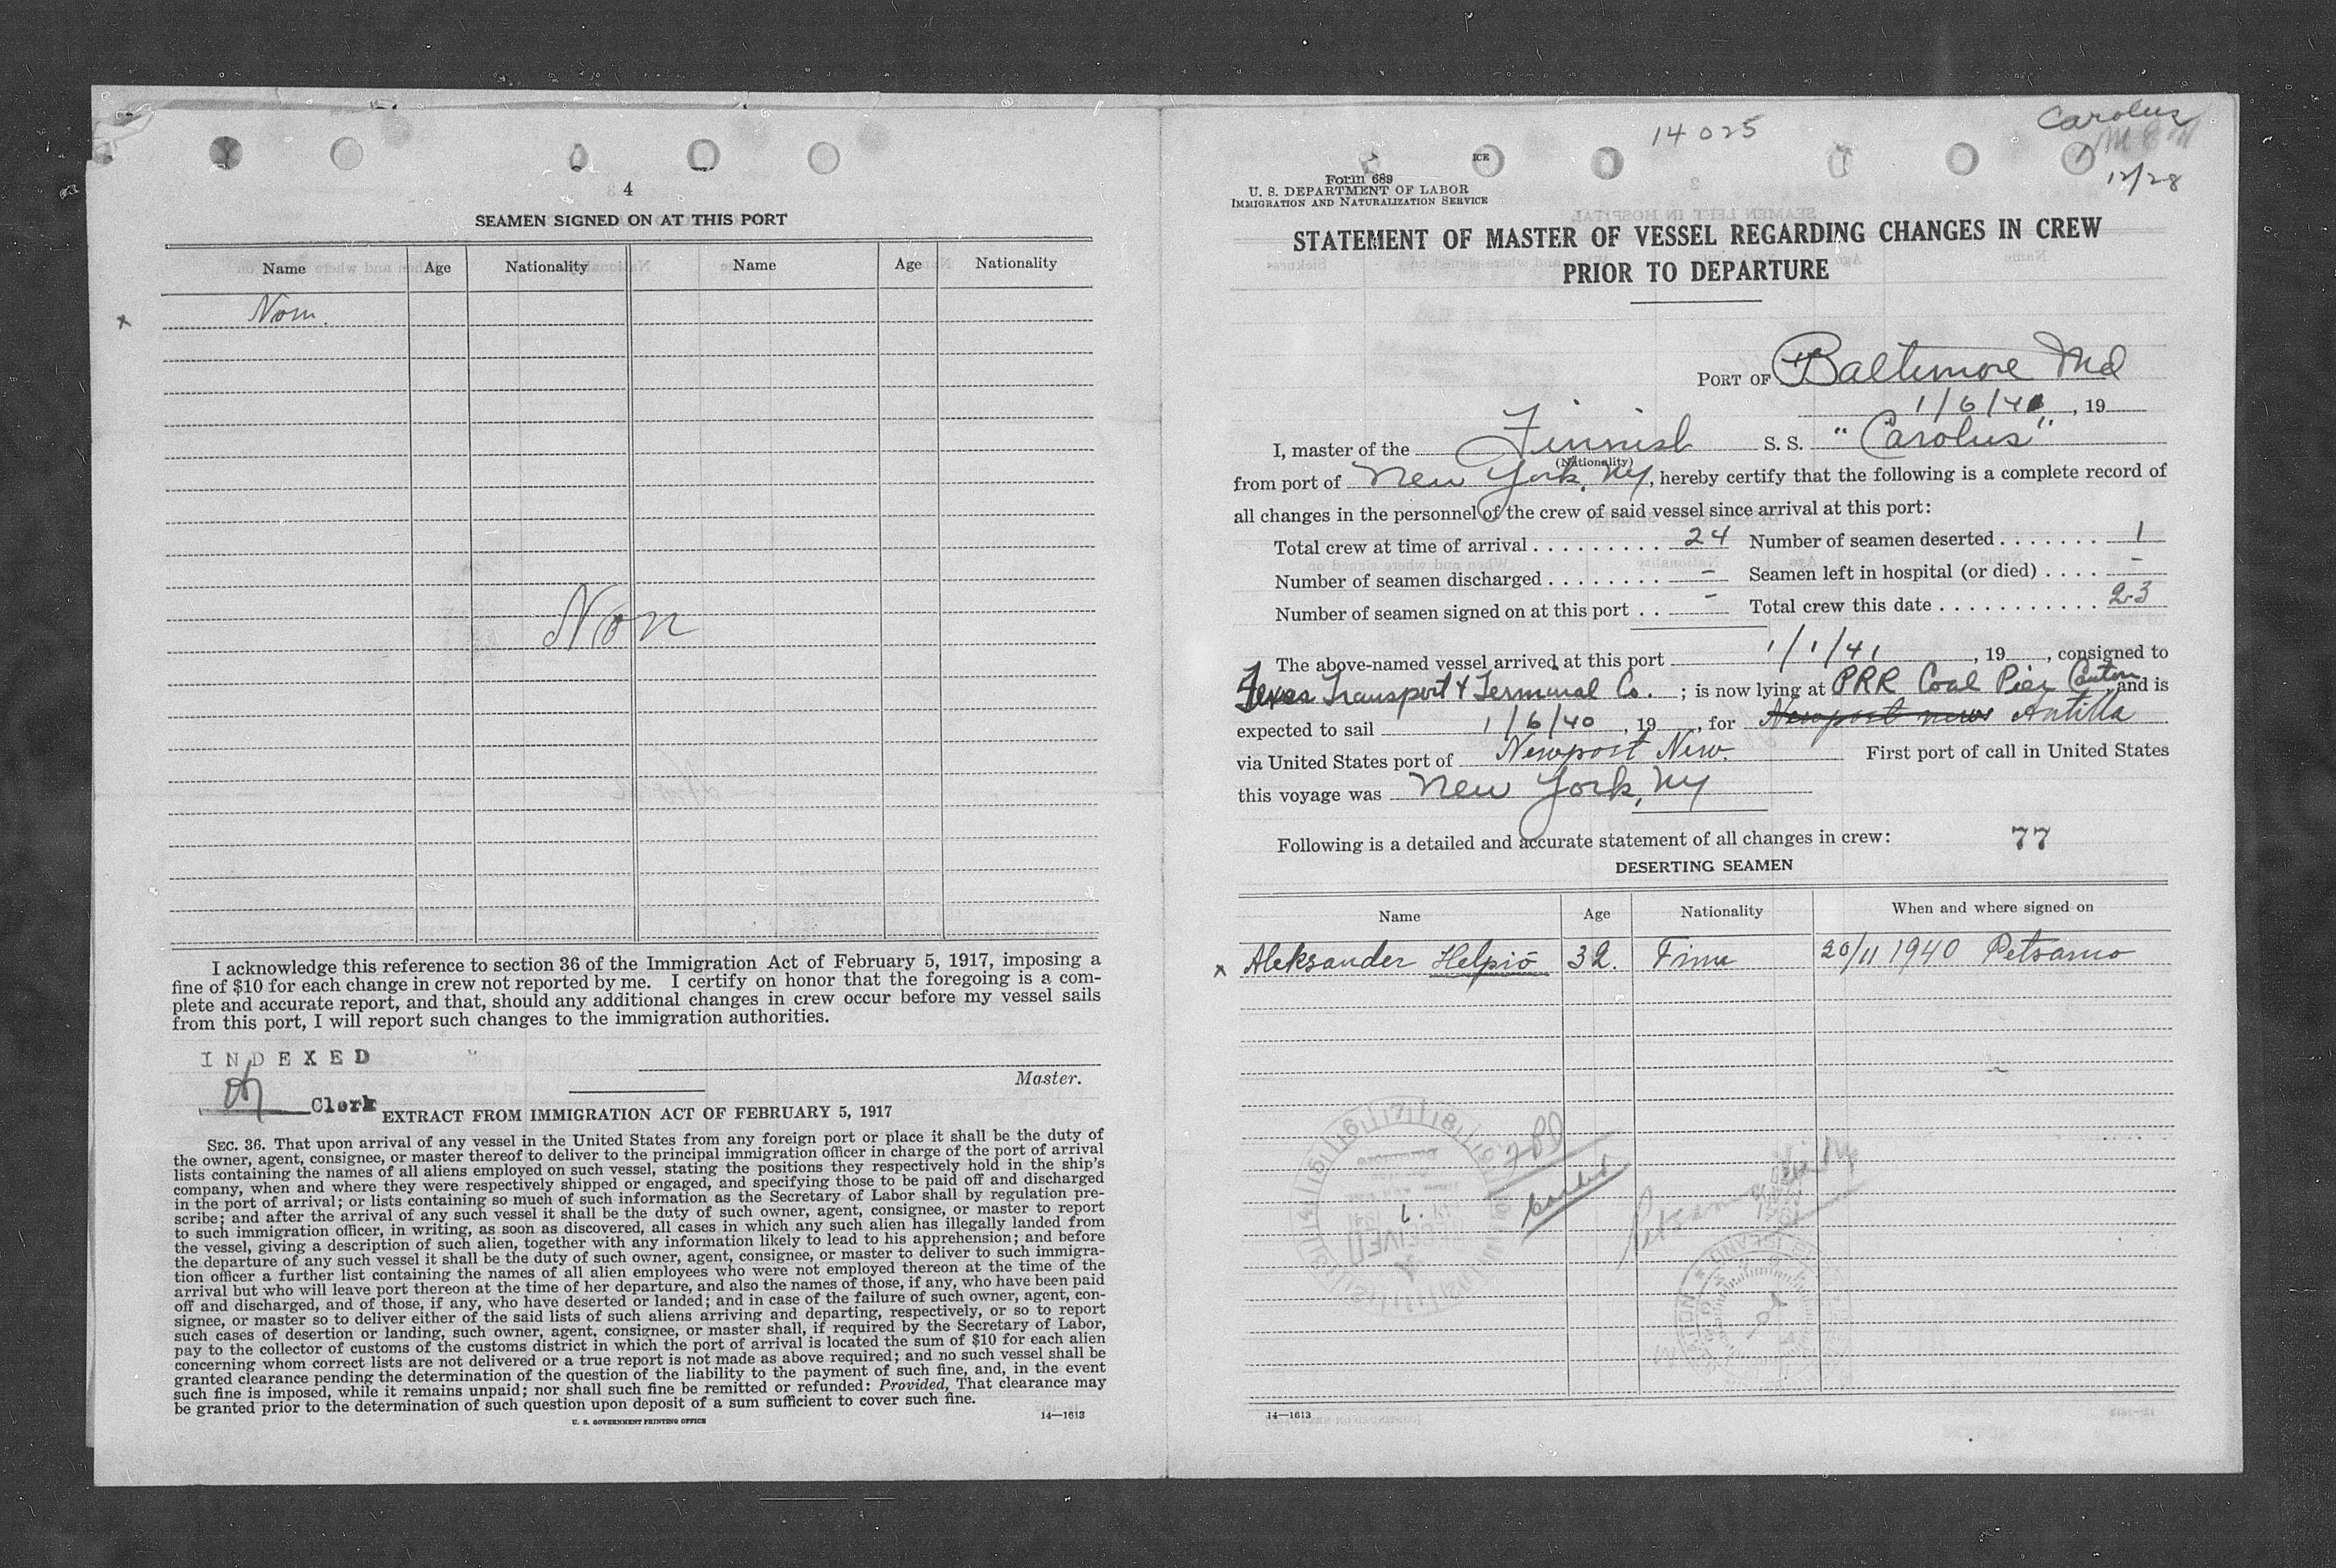 4
SEAMEN SIGNED ON AT THIS PORT
Name Age Nationality Name Age Nationality
x Non.
Non
I acknowledge this reference to section 36 of the Immigration Act of February 5, 1917, imposing a
fine of $10 for each change in crew not reported by me. I certify on honor that the foregoing is a com-
plete and accurate report, and that, should any additional changes in crew occur before my vessel sails
from this port, I will report such changes to the immigration authorities.
INDEXED
Master.
Clerk
EXTRACT FROM IMMIGRATION ACT OF FEBRUARY 5, 1917
SEC. 36. That upon arrival of any vessel in the United States from any foreign port or place it shall be the duty of
the owner, agent, consignee, or master thereof to deliver to the principal immigration officer in charge of the port of arrival
lists containing the names of all aliens employed on such vessel, stating the positions they respectively hold in the ship's
company, when and where they were respectively shipped or engaged, and specifying those to be paid off and discharged
in the port of arrival; or lists containing so much of such information as the Secretary of Labor shall by regulation pre-
scribe; and after the arrival of any such vessel it shall be the duty of such owner, agent, consignee, or master to report
to such immigration officer, in writing, as soon as discovered, all cases in which any such alien has illegally landed from
the vessel, giving a description of such alien, together with any information likely to lead to his apprehension; and before
the departure of any such vessel it shall be the duty of such owner, agent, consignee, or master to deliver to such immigra-
tion officer a further list containing the names of all alien employees who were not employed thereon at the time of the
arrival but who will leave port thereon at the time of her departure, and also the names of those, if any, who have been paid
off and discharged, and of those, if any, who have deserted or landed; and in case of the failure of such owner, agent, con-
signee, or master so to deliver either of the said lists of such aliens arriving and departing, respectively, or so to report
such cases of desertion or landing, such owner, agent, consignee, or master shall, if required by the Secretary of Labor,
pay to the collector of customs of the customs district in which the port of arrival is located the sum of $10 for each alien
concerning whom correct lists are not delivered or a true report is not made as above required; and no such vessel shall be
granted clearance pending the determination of the question of the liability to the payment of such fine, and, in the event
such fine is imposed, while it remains unpaid; nor shall such fine be remitted or refunded: Provided, That clearance may
be granted prior to the determination of such question upon deposit of a sum sufficient to cover such fine.
U. S. GOVERNMENT PRINTING OFFICE 14—1613
Carolus
14025
12/28
ICE
Form 689
U. S. DEPARTMENT OF LABOR
IMMIGRATION AND NATURALIZATION SERVICE
STATEMENT OF MASTER OF VESSEL REGARDING CHANGES IN CREW
PRIOR TO DEPARTURE
PORT OF Baltimore Md
1/6/41, 19
I, master of the Finnish S. S. "Carolus"
(Nationality)
from port of New York, Ny, hereby certify that the following is a complete record of
all changes in the personnel of the crew of said vessel since arrival at this port:
Total crew at time of arrival . . . . . . . . . 24 Number of seamen deserted . . . . . . . 1
Number of seamen discharged . . . . . . . . - Seamen left in hospital (or died) . . . . -
Number of seamen signed on at this port . . - Total crew this date . . . . . . . . . . . 23
The above-named vessel arrived at this port 1/1/41, 19 , consigned to
Texas Transport & Terminal Co. ; is now lying at PRR Coal Pier Canton and is
expected to sail 1/6/40, 19 , for Newport news Antilla
via United States port of Newport New. First port of call in United States
this voyage was New York, Ny
Following is a detailed and accurate statement of all changes in crew: 77
DESERTING SEAMEN
Name Age Nationality When and where signed on
x Aleksander Helpiö 32. Finn 20/11 1940 Petsamo
14—1613